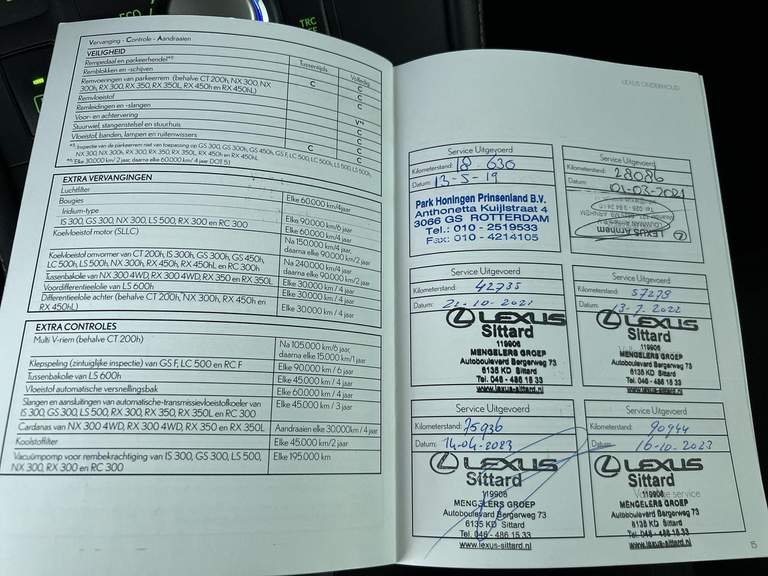 ECO
TRC
Vervanging - Controle - Aandraaien
VEILIGHEID
Tussentijds
Volledig
Rempedaal en parkeerhendel*¹
C
Remblokken en -schijven
C
Remvoeringen van parkeerrem (behalve CT 200h, NX 300, NX 300h, RX 300, RX 350, RX 350L, RX 450h en RX 450hL)
C
C
Remvloeistof
C
Remleidingen en -slangen
C
Voor- en achtervering
Stuurwiel, stangenstelsel en stuurhuis
C
Vloeistof, banden, lampen en ruitenwissers
C
C
EXTRA VERVANGINGEN
Luchtfilter
Elke 60.000 km/4jaar
Bougies
Iridium-type
IS 300, GS 300, NX 300, LS 500, RX 300 en RC 300
Elke 90.000 km/6 jaar
Koelvloeistof motor (SLLC)
Elke 60.000 km/4 jaar
Na 150.000 km/4 jaar,
daarna elke 90.000 km/2 jaar
Koelvloeistof omvormer van CT 200h, IS 300h, GS 300h, GS 450h,
LC 500h, LS 500h, NX 300h, RX 450h, RX 450hL en RC 300h
Na 240.000 km/4 jaar
daarna elke 90.000 km/2 jaar
Tussenbakolie van NX 300 4WD, RX 300 4WD, RX 350 en RX 350L
Elke 30.000 km/4 jaar
Voordifferentieelolie van LS 600h
Elke 30.000 km / 4 jaar
Differentieelolie achter (behalve CT 200h, NX 300h, RX 450h en
RX 450hL)
Elke 30.000 km / 4 jaar
EXTRA CONTROLES
Multi V-riem (behalve CT 200h)
Na 105.000 km/6 jaar,
daarna elke 15.000 km/1 jaar
Klepspeling (zintuiglijke inspectie) van GS F, LC 500 en RC F
Elke 90.000 km / 6 jaar
Tussenbakolie van LS 600h
Elke 45.000 km / 4 jaar
Vloeistof automatische versnellingsbak
Elke 60.000 km / 4 jaar
Slangen en aansluitingen van automatische-transmissievloeistofkoeler van
IS 300, GS 300, LS 500, RX 300, RX 350, RX 350L en RC 300
Elke 45.000 km / 3 jaar
Cardanas van NX 300 4WD, RX 300 4WD, RX 350 en RX 350L
Aandraaien elke 30.000km / 4 jaar
Koolstoffilter
Elke 45.000 km/2 jaar
Vacuümpomp voor rembekrachtiging van IS 300, GS 300, LS 500,
NX 300, RX 300 en RC 300
Elke 195.000 km
LEXUS ONDERHOUD
Service Uitgevoerd
Kilometerstand: 18-630
Datum: 13-5-19
Park Honingen Prinsenland B.V.
Anthonetta Kuijlstraat 4
3066 GS ROTTERDAM
Tel.: 010 - 2519533
Fax: 010 - 4214105
Service Uitgevoerd
Kilometerstand: 28086
Datum: 01-03-2021
LEXUS Arnhem
Service Uitgevoerd
Kilometerstand: 42735
Datum: 21-10-2021
LEXUS
Sittard
119906
MENGELERS GROEP
Autoboulevard Bergerweg 73
6135 KD Sittard
Tel. 046 - 486 15 33
www.lexus-sittard.nl
Service Uitgevoerd
Kilometerstand: 57279
Datum: 13-7-2022
LEXUS
Sittard
119906
MENGELERS GROEP
Autoboulevard Bergerweg 73
6135 KD Sittard
Tel. 046 - 486 15 33
www.lexus-sittard.nl
Service Uitgevoerd
Kilometerstand: 75936
Datum: 14-04-2023
LEXUS
Sittard
119906
MENGELERS GROEP
Autoboulevard Bergerweg 73
6135 KD Sittard
Tel. 046 - 486 15 33
www.lexus-sittard.nl
Service Uitgevoerd
Kilometerstand: 90944
Datum: 16-10-2023
LEXUS
Sittard
119906
service
MENGELERS GROEP
Autoboulevard Bergerweg 73
6135 KD Sittard
Tel. 046 - 486 15 33
www.lexus-sittard.nl
15